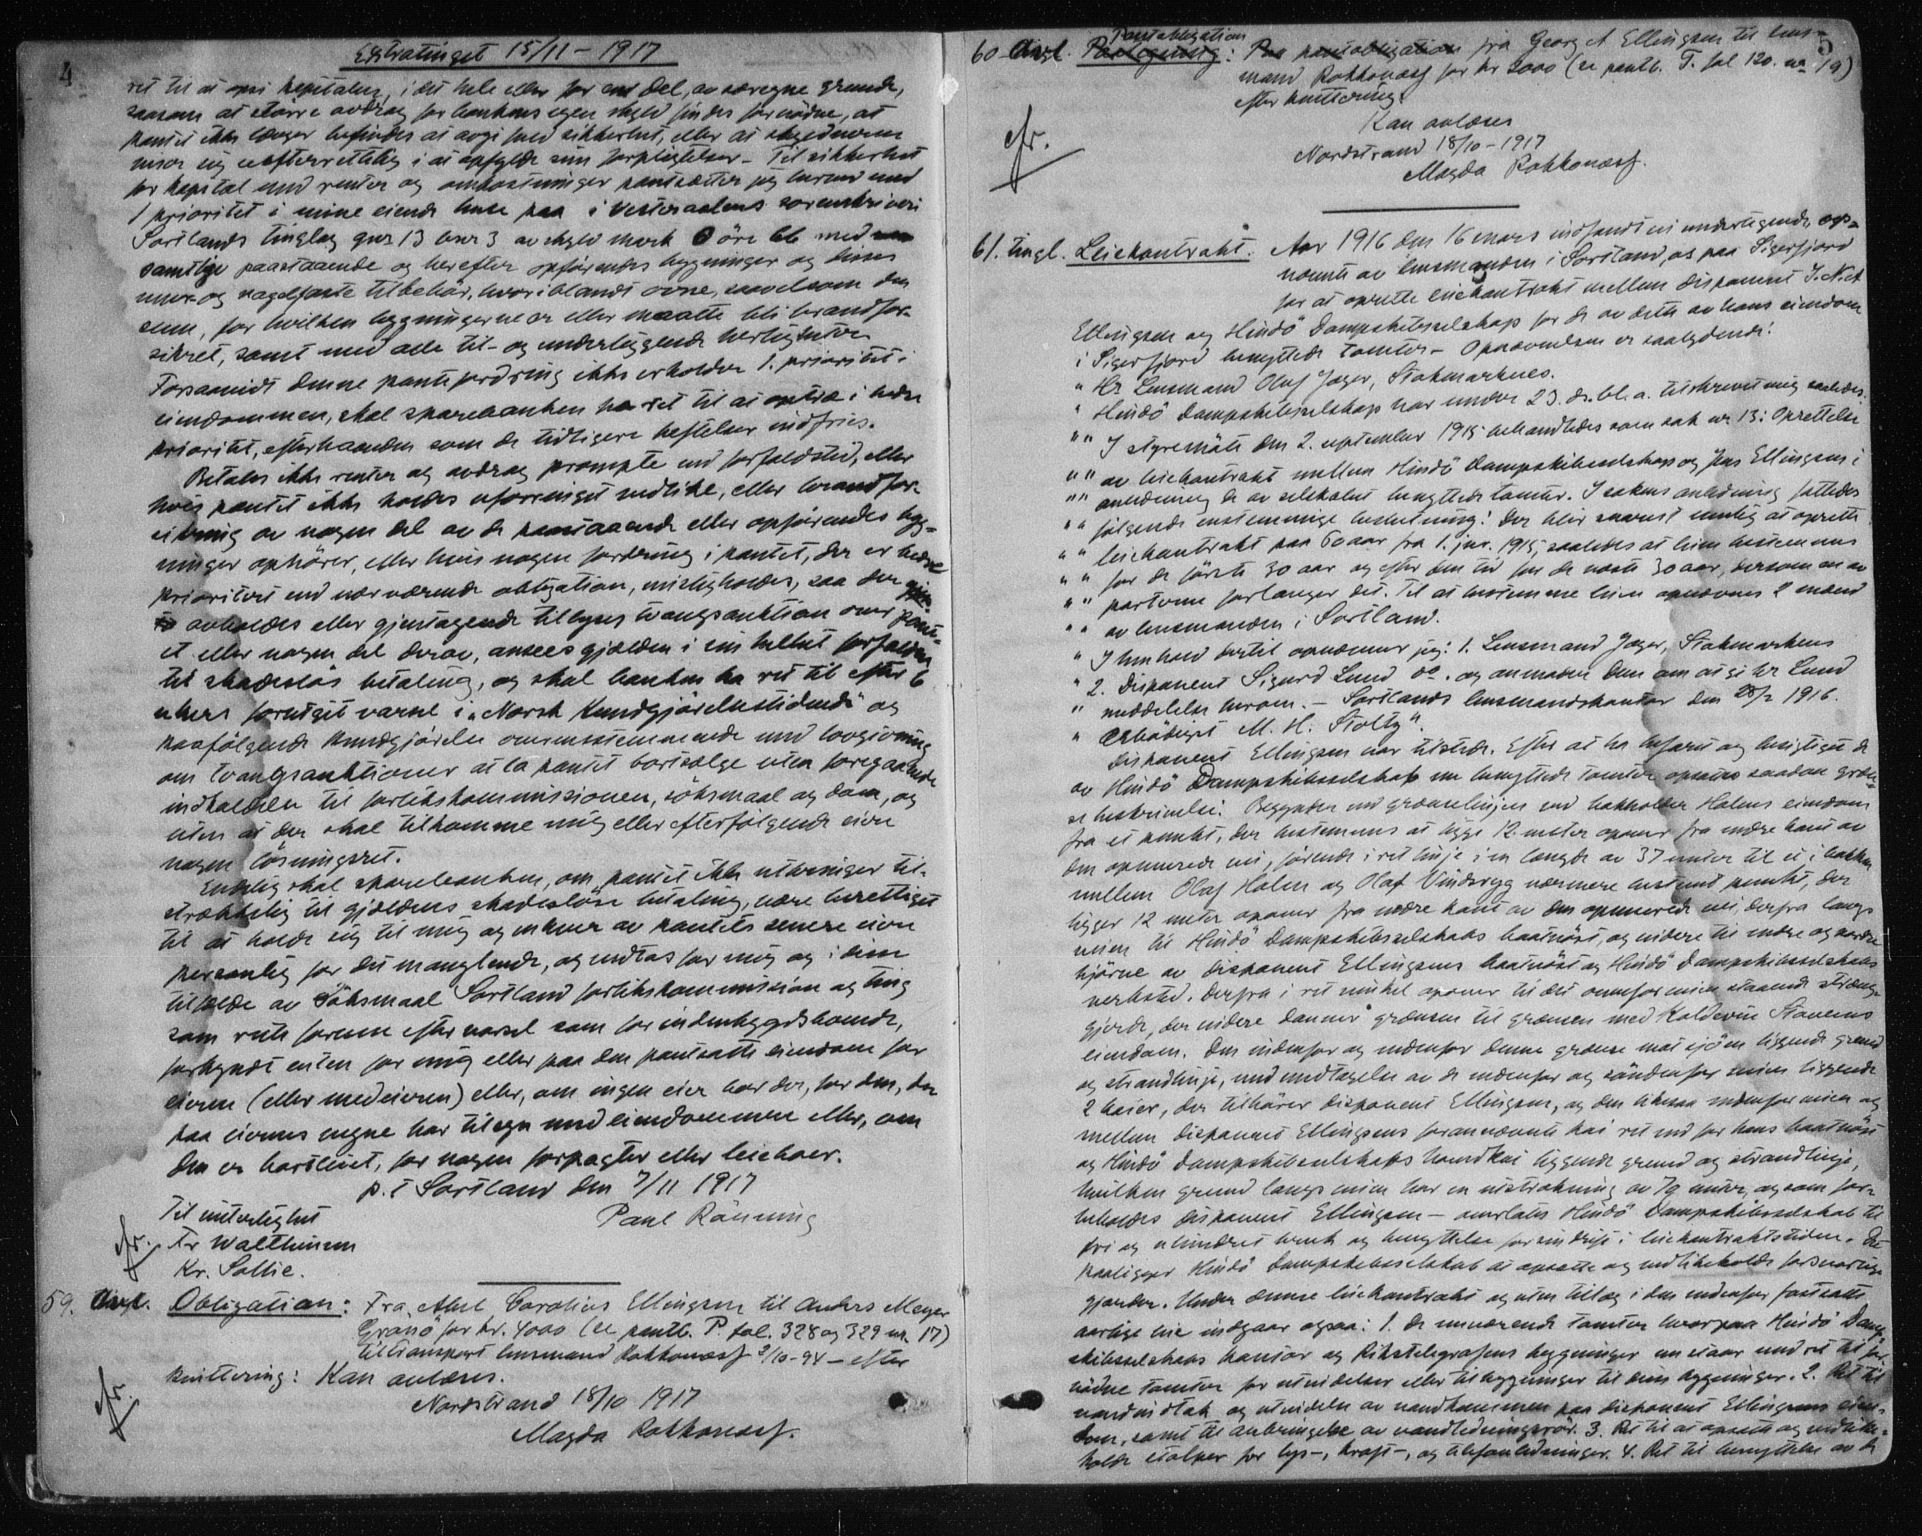 4
Extratinget 15/11 - 1917
ret til at opsi kapitalen, i det hele eller for en del, av særegne grunde,
saasom at större avdrag for bankens egen skyld findes fornödne, at
pantet ikke længer befindes at avgi fuld sikkerhet, eller at skyldneren
viser sig uefterrettelig i at opfylde sine forpligtelser - Til sikkerhet
for kapital med renter og omkostninger pantsætter jeg herved med
1 prioritet i mine eiende huse paa i Vesteraalens sorenskriveri
Sortlands tinglag gnr 13 bnr 3 av skyld mark 0 öre 66 med
samtlige paastaaende og herefter opförendes bygninger og disses
mur- og nagelfaste tilbehör, hvoriblandt ovne, saavelsom den
sum, for hvilken bygningerne er eller maatte bli brandfor-
sikret, samt med alle til- og underliggende herligheter.
Forsaavidt denne pantefordring ikke erholder 1. prioritet i
eiendommen, skal sparebanken ha ret til at optræ i bedre
prioritet, efterhaanden som de tidligere heftelser indfries.
Betales ikke renter og avdrag prompte ved forfaldstid, eller
hvis pantet ikke holdes uforringet vedlike, eller brandfor-
sikring av nogen del av de paastaaende eller opförendes byg-
ninger ophörer, eller hvis nogen fordring i pantet, der er bedre
prioritert end nærværende obligation, misligholdes, saa der
avholdes eller gjentagende tillyses tvangsauktion over pant-
et eller nogen del derav, ansees gjælden i sin helhet forfalden
til skadeslös betaling, og skal banken ha ret til efter 6
ukers forutgit varsel i "Norsk Kundgjörelsestidende" og
paafölgende kundgjörelse overensstemmende med lovgivning
om tvangsauktioner at la pantet bortsælge uten foregaaende
indkaldelse til forlikskommissionen, söksmaal og dom, og
uten at der skal tilkomme mig eller efterfölgende eiere
nogen lösningsret.
Endelig skal sparebanken, om pantet ikke utbringer til-
strækkelig til gjældens skadeslöse betaling, være berettiget
til at holde sig til mig og enhver av pantets senere eiere
personlig for det manglende, og vedtas for mig og i disse
tilfælde av söksmaal Sortland forlikskommission og ting
som rette forum efter varsel som for indenbygdsboende,
forkyndt enten for mig eller paa den pantsatte eiendom for
eieren (eller medeieren) eller, om ingen eier bor der, for den, der
paa eierens vegne har tilsyn med eiendommen eller, om
den er bortleiet, for nogen forpagter eller leieboer.
p.t Sortland den 7/11 1917
Til vitterlighet Paul Rönning
Fr Walthinsen
Kr. Sollie.
59. tingl. Obligation: Fra Abel Carolius Ellingsen til Anders Meyer
Gransö for kr. 4000 (se pantb. P. fol. 328 og 329 nr. 17)
til transport lensmand Rokkonæsf 2/10-94 - efter
kvittering: Kan avlæses.
Nordstrand 18/10 1917
Magda Rokkonæsf.
5
Pantobligation
60 tingl. fra Georg A Ellingsen til lens-
mand Rokkonæsf for kr 2000 (se pantb. T. fol 120. nr 19)
efter kvittering.
Kan avlæses
Nordstrand 18/10 - 1917
Magda Rokkonæsf.
61. tingl. Leiekontrakt. Aar 1916 den 16 mars indfandt vi undertegnede, op-
nævnte av lensmanden i Sortland, os paa Sigerfjord
for at oprette leiekontrakt mellem disponent J. N. A
Ellingsen og Hindö Dampskibsselskap for de av dette av hans eiendom
i Sigerfjord benyttede tomter - Opnævnelsen er saalydende:
" Hr Lensmand Oluf Jager, Stokmarknes.
" Hindö Dampskibsselskap har under 23. ds. bl. a. tilskrevet mig saaledes:
" " I styremöte den 2. september 1915 behandledes som sak nr 13: Oprettelse
" " av leiekontrakt mellem Hindö Dampskibsselskap og Jens Ellingsen i
" " anledning de av selskabet benyttede tomter. I sakens anledning fattedes
" " fölgende enstemmige beslutning: Der blir snarest mulig at oprette
" " leiekontrakt paa 60 aar fra 1. jan. 1915, saaledes at leien bestemmes
" " for de förste 30 aar og efter den tid for de næste 30 aar, dersom en av
" " parterne forlanger det. Til at bestemme leien opnævnes 2 mænd
" " av lensmanden i Sortland.
" I henhold hertil opnævner jeg: 1. Lensmand Jager, Stokmarknes
" 2. Disponent Sigurd Lund do. og anmoder Dem om at gi hr Lund
" meddelelse herom. - Sortlands lensmandskontor den 28/2 1916.
" Ærbödigst M. H. Stoltz".
Disponent Ellingsen var tilstede. Efter at ha befaret og besigtiget de
av Hindö Dampskibsselskab nu benyttede tomter opsaas saadan græn-
se beskrivelse: Begynder ved grænselinjen ved Halens eiendom
fra et punkt, der bestemmes at ligge 12 meter ovenfor fra nedre kant av
den opmurede vei, förende i ret linje i en længde av 37 meter til et i bakken
mellem Olaf Holen og Olaf Vindsryg nærmere bestemt punkt, der
ligger 12 meter ovenfor fra nedre kant av den opmurede vei, derfra langs
veien til Hindö Dampskibsselskabs baatnöst, og videre til nedre og nordre
hjörne av disponent Ellingsens baatnöst og Hindö Dampskibsselskabs
verksted. Derfra i ret vinkel opover til det ovenfor veien staaende stræng-
gjerde, der videre danner grænsen til grænsen med Stavens
eiendom. Den indenfor og nedenfor denne grænse mot sjöen liggende grund
og strandlinje, med undtagelse av de nedenfor og söndenfor veien liggende
2 kaier, der tilhörer disponent Ellingsen, og den likesaa nedenfor veien og
mellem disponent Ellingsens forannævnte kai ret ned for hans baatnöst
og Hindö Dampskibsselskabs kai liggende grund og strandlinje,
hvilken grund langs veien har en utstrækning av 79 meter, og som for-
beholdes disponent Ellingsen - overlates Hindö Dampskibsselskab til
fri og uhindret bruk og benyttelse for sin drift i leiekontraktstiden. Det
paaligger Hindö Dampskibsselskab at opsætte og vedlikeholde forsvarlige
gjærder. Under denne leiekontrakt og uten tillæg i den nedenfor fastsatte
aarlige leie indgaar ogsaa: 1. de nuværende tomter hvorpaa Hindö Damp-
skibsselskabs kontor og Rikstelegrafens bygninger nu staar med ret til for-
nödne tomter for utvidelser eller tilbygninger til disse bygninger. 2. Ret til
vandindtak og utvidelse av vandkummen paa disponent Ellingsens eien-
dom, samt til anbringelse av vandledningsrör. 3. Ret til at opsætte og vedlike-
holde stolper for lys-, kraft-, og telefonledninger. 4. Ret til benyttelse av de